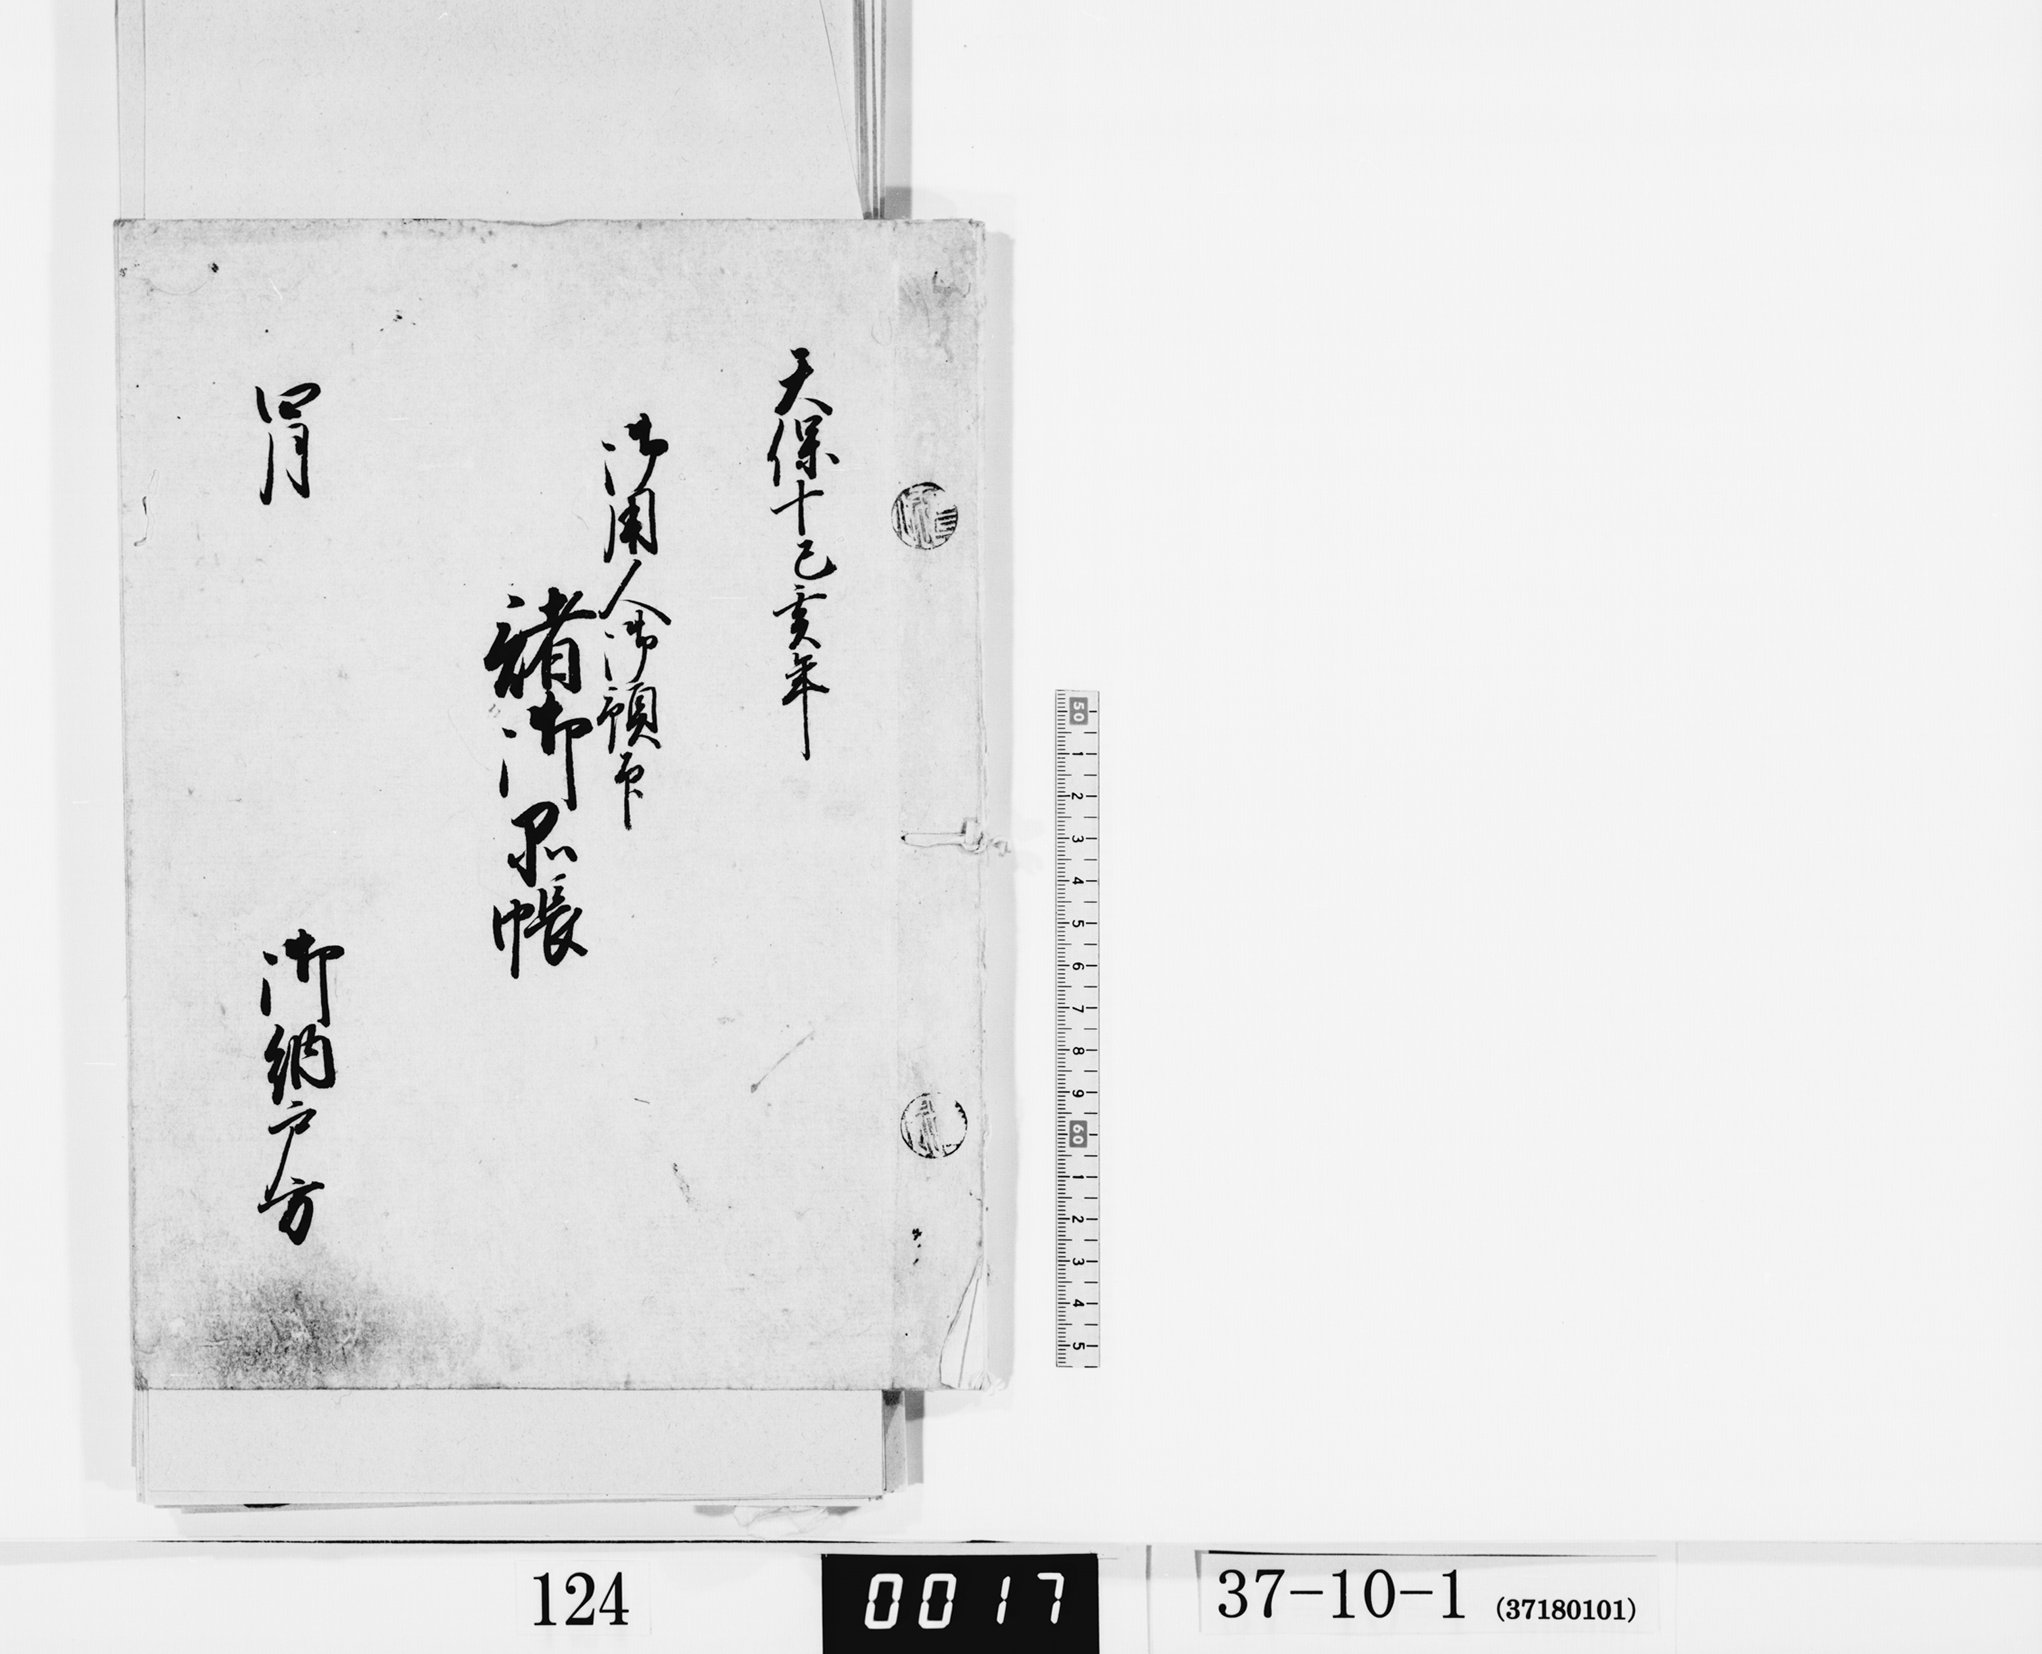 天保十己亥年
御用人御預印
諸御品帳
四月
御納戸方
50
1
2
3
4
5
6
7
8
9
60
1
2
3
4
5
124
0017
37-10-1 (37180101)